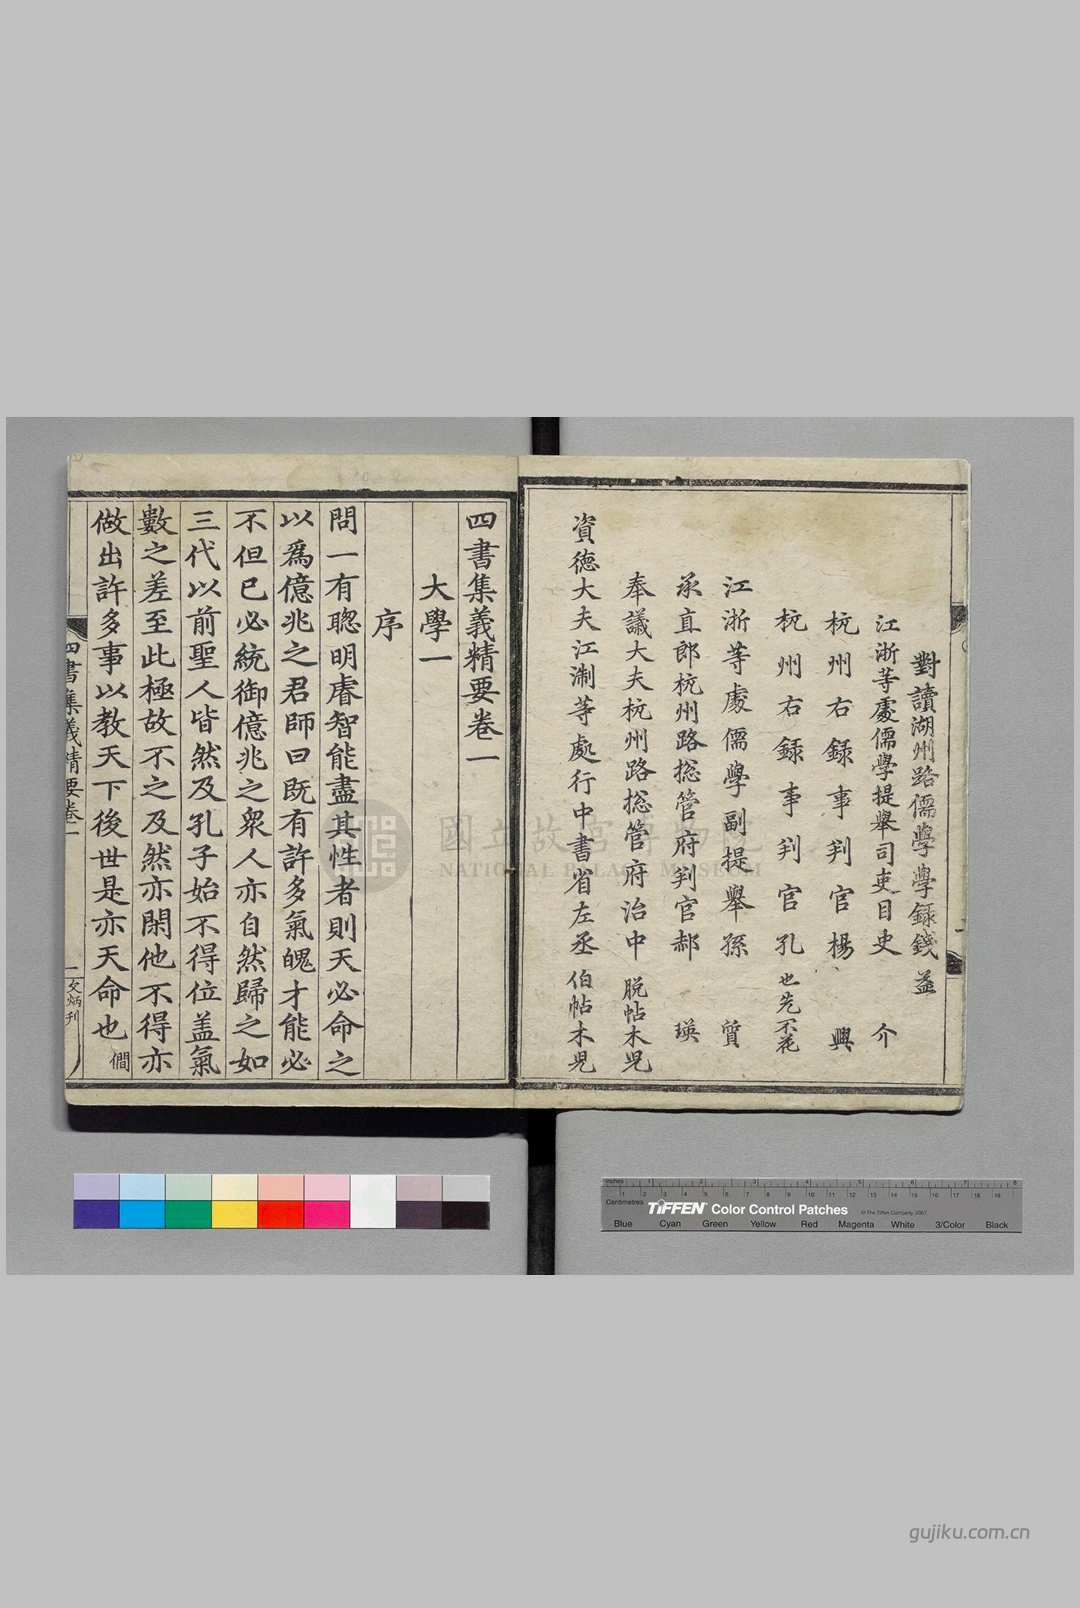 對讀湖州路儒學學録錢益
江浙等處儒學提舉司吏目史介
杭州右録事判官楊興
杭州右録事判官孔也先不花
江浙等處儒學副提舉孫質
承直郎杭州路揔管府判官郝瑛
奉議大夫杭州路揔管府治中脱帖木児
資德大夫江淛等處行中書省左丞伯帖木児
四書集義精要卷一
大學一
序
問一有聦明睿智能盡其性者則天必命之
以爲億兆之君師曰既有許多氣魄才能必
不但已必統御億兆之衆人亦自然歸之如
三代以前聖人皆然及孔子始不得位盖氣
數之差至此極故不之及然亦閑他不得亦
做出許多事以教天下後世是亦天命也 僩
四書集義精要卷一
一
文炳刋
國立故宮博物院
NATIONAL PALACE MUSEUM
inches
Centimetres
TIFFEN Color Control Patches
© The Tiffen Company, 2007
Blue Cyan Green Yellow Red Magenta White 3/Color Black
gujiku.com.cn